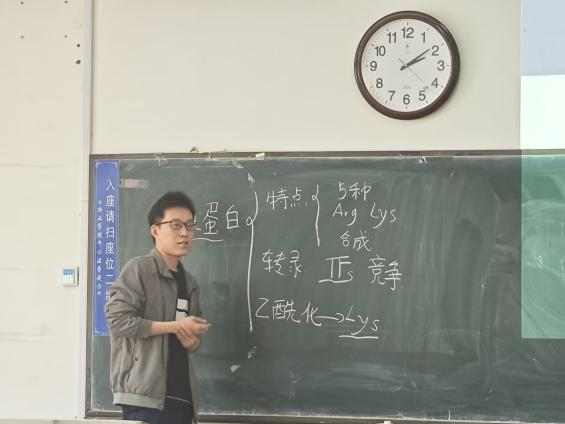 12
1
2
3
4
5
6
7
8
9
10
11
入座请扫座位二维
蛋白
特点
5种
Arg Lys
合成
转录
竞争
乙酰化→Lys